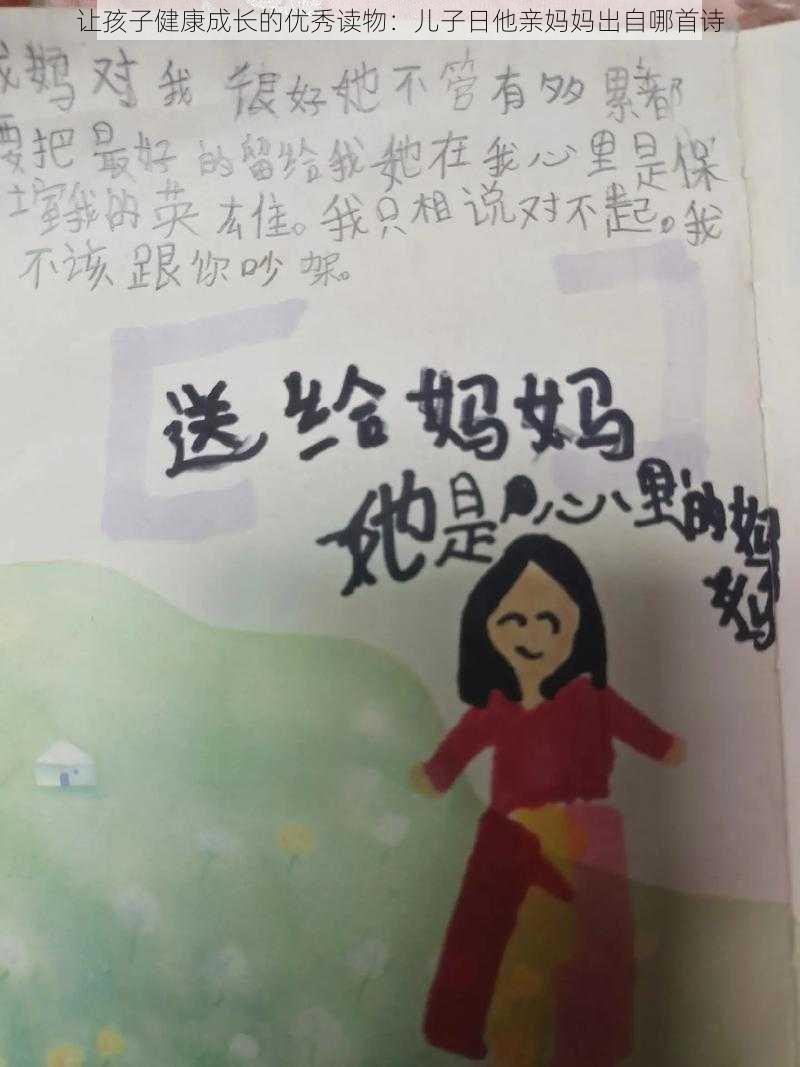 让孩子健康成长的优秀读物：儿子日他亲妈妈出自哪首诗
妈对我很好她不管有多累都
要把最好的留给我她在我心里是保
我的英左隹。我只相说对不起。我
不该跟你吵架。
送给妈妈
她是心里的妈
妈